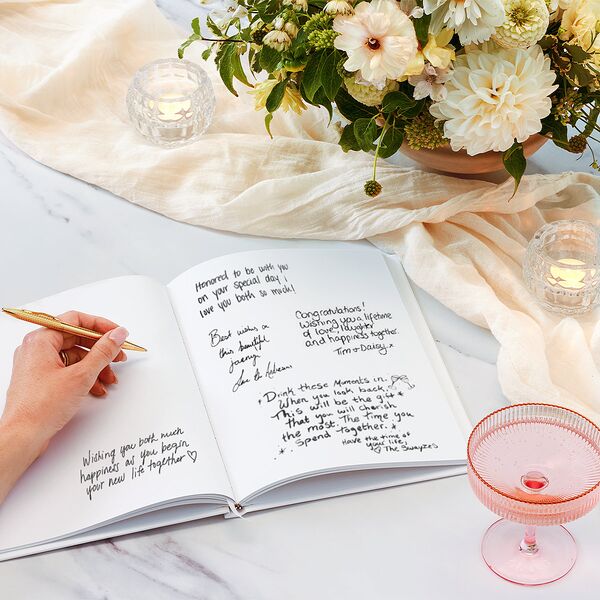 Wishing you both much
happiness as you begin
your new life together ♡
Honored to be with you
on your special day!
love you both so much!
Best wishes on
this beautiful
Congratulations!
Wishing you a lifetime
of love, laughter
and happiness together.
Tim + Daisy
Drink these moments in.
When you look back
This will be the gift
that you will cherish
the most. The time you
spend together.
Have the time of
your life,
♡ The Swayzes